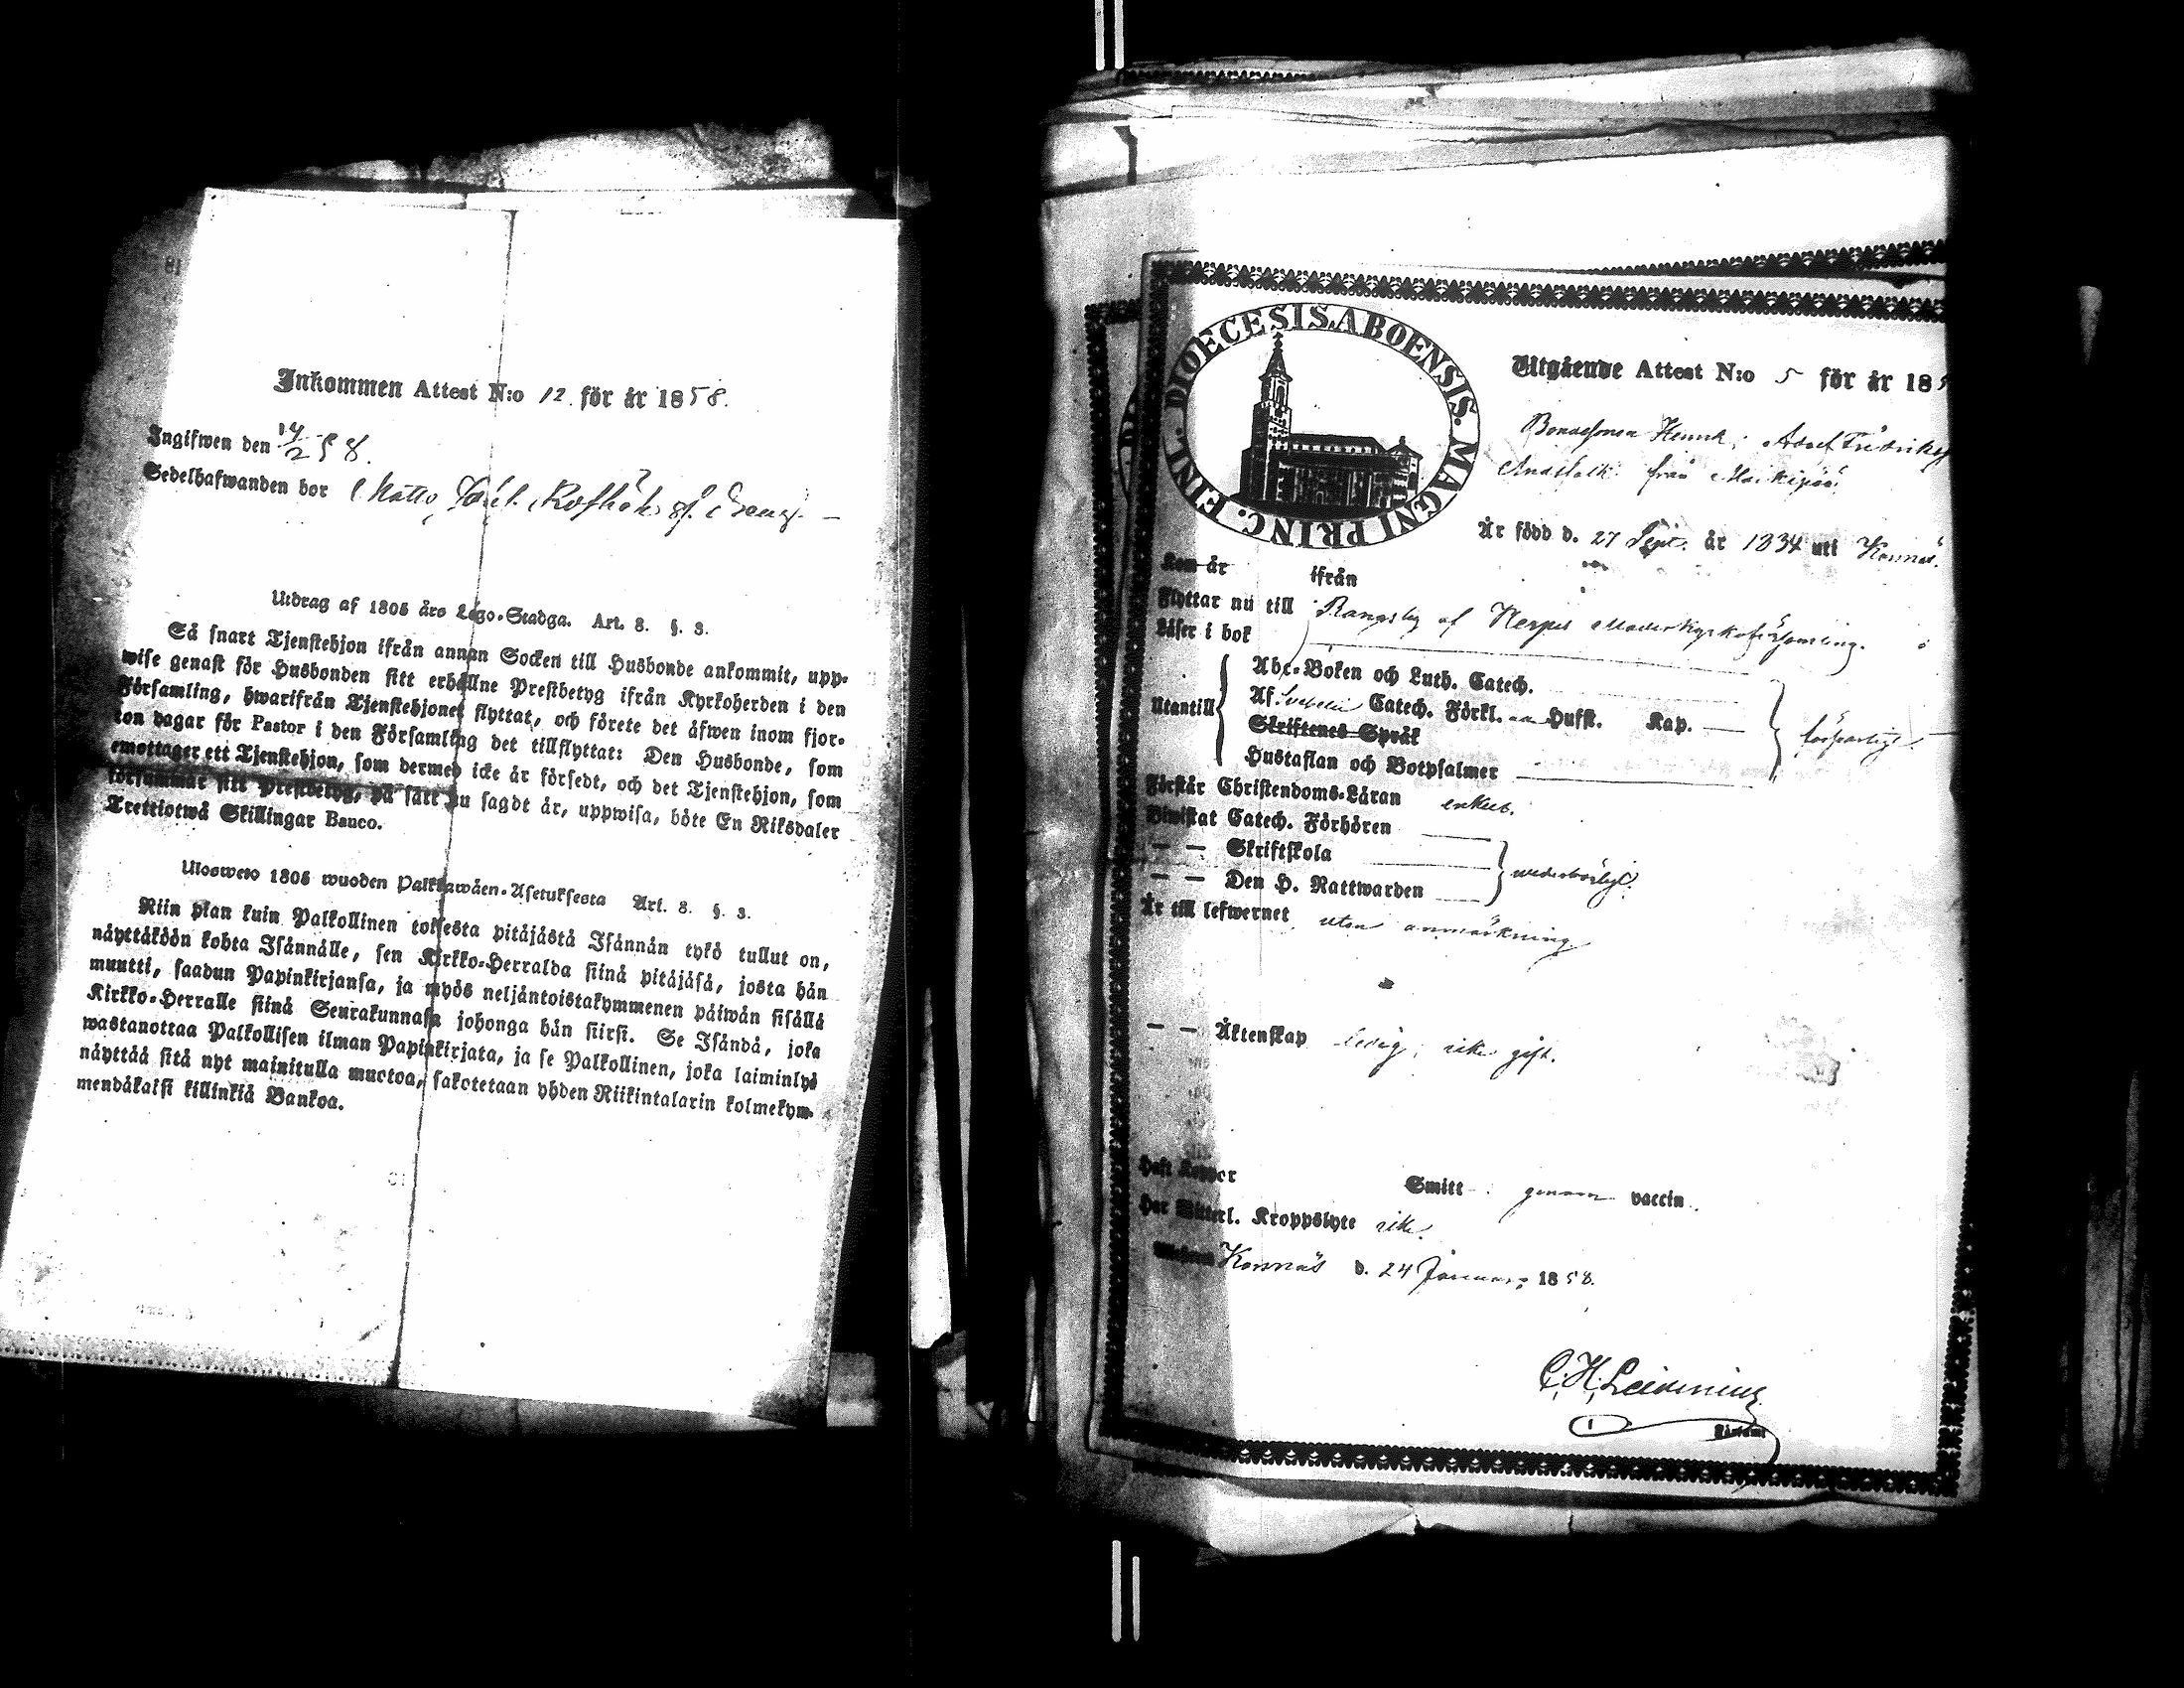 Inkommen Attest N:o 12 för år 1858.
Ingifwen den 14/2 58.
Sedelhafwanden bor
Utdrag af 1805 års Lego-Stadga. Art. 8. §. 3.
Så snart Tjenstehjon ifrån annan Socken till Husbonde ankommit, upp-
wise genast för Husbonden sitt erhållne Prestbetyg ifrån Kyrkoherden i den
Församling, hwarifrån Tjenstehjonet flyttat, och förete det äfwen inom fjor-
ton dagar för Pastor i den Församling det tillflyttat: Den Husbonde, som
emottager ett Tjenstehjon, som dermed icke är försedt, och det Tjenstehjon, som
försummar sitt Prestbetyg, på sätt nu sagdt är, uppwisa, böte En Riksdaler
Trettiotwå Skillingar Banco.
Ulosweto 1805 wuoden Palkkawäen-Asetuksesta Art. 8. §. 3.
Niin pian kuin Palkollinen toisesta pitäjästä Isännän tykö tullut on,
näyttäköön kohta Isännälle, sen Kirkko-Herralda siinä pitäjäsä, josta hän
muutti, saadun Papinkirjansa, ja myös neljäntoistakymmenen päiwän sisällä
Kirkko-Herralle siinä Seurakunnasa johonga hän siirsi. Se Isändä, joka
wastanottaa Palkollisen ilman Papinkirjata, ja se Palkollinen, joka laiminlyö
näyttää sitä nyt mainitulla muotoa, sakotetaan yhden Riikintalarin kolmekym-
mendäkaksi killinkiä Bankoa.
DIOECESIS. ABOENSIS. MAGNI PRINC. FINL.
Utgående Attest N:o 5 för år 185
Bondesonen Henrik Adolf Fredriks
Andstalk från
Är född d. 27 Sept. år 1834 uti Korsnäs.
Kom år ifrån
Flyttar nu till Rangsby af Nerpes Moderkyrkoförsamling.
Läser i bok
Utantill
Abc-Boken och Luth. Catech.
Af Svebelii Catech. Förkl. Hufst. Kap.
Skriftenes Språk
Hustaflan och Botpsalmer
försvarligt
Förstår Christendoms-Läran enkelt.
Biwistat Catech. Förhören
— — Skriftskola
— — Den H. Nattwarden
wederbörligt.
Är till lefwernet utan anmärkning
— — Äktenskap ledig, icke gift.
Haft Koppor Smitt genom vaccin.
Har Witterl. Kroppslyte icke.
Korsnäs d. 24 Januari 1858.
C. H.